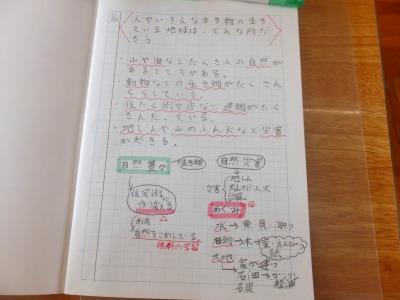 人やいろんな生き物の生き
ている地球は、どんな所だ
ろう
・山や海などたくさんの自然が
あるところがある。
・動物などの生き物がたくさん
くらしている。
・住たく街や店など建物がたく
さんたっている。
・地しんや山のふん火など災害
が起きる。
自然豊か
生き物
自然災害
住宅街
災害
地しん
火山のふん火
台風
めぐみ
利用
自然をこわしている
水→魚、貝、海そう
植物→木→家
紙
大地
家が建つ
石油
石炭